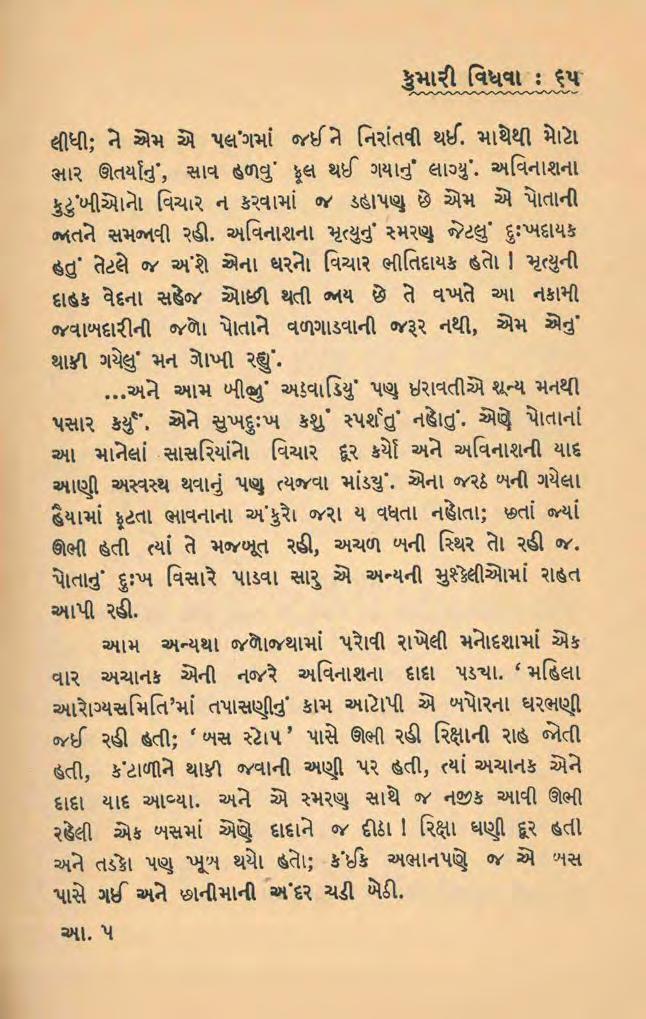 કુમારી વિધવા : ૬૫
લીધી; ને એમ એ પલંગમાં જઈ ને નિરાંતવી થઈ. માથેથી મોટો
ભાર ઊતર્યાનું, સાવ હળવું ફૂલ થઈ ગયાનું લાગ્યું. અવિનાશના
કુટુંબીઓનો વિચાર ન કરવામાં જ ડહાપણ છે એમ એ પોતાની
જાતને સમજાવી રહી. અવિનાશના મૃત્યુનું સ્મરણ જેટલું દુઃખદાયક
હતું તેટલે જ અંશે એના ઘરનો વિચાર ભીતિદાયક હતો ! મૃત્યુની
દાહક વેદના સહેજ ઓછી થતી જાય છે તે વખતે આ નકામી
જવાબદારીની જળો પોતાને વળગાડવાની જરૂર નથી, એમ એનું
થાકી ગયેલું મન ગોખી રહ્યું.
...અને આમ બીજું અડવાડિયું પણ ઇરાવતીએ શૂન્ય મનથી
પસાર કર્યું. એને સુખદુઃખ કશું સ્પર્શતું નહોતું. એણે પોતાનાં
આ માનેલાં સાસરિયાંનો વિચાર દૂર કર્યો અને અવિનાશની યાદ
આણી અસ્વસ્થ થવાનું પણ ત્યજવા માંડ્યું. એના જરઠ બની ગયેલા
હૈયામાં ફૂટતા ભાવનાના અંકુરો જરા ય વધતા નહોતા; છતાં જ્યાં
ઊભી હતી ત્યાં તે મજબૂત રહી, અચળ બની સ્થિર તો રહી જ.
પોતાનું દુઃખ વિસારે પાડવા સારુ એ અન્યની મુશ્કેલીઓમાં રાહત
આપી રહી.
આમ અન્યથા જળોજથામાં પરોવી રાખેલી મનોદશામાં એક
વાર અચાનક એની નજરે અવિનાશના દાદા પડ્યા. ‘ મહિલા
આરોગ્યસમિતિ’માં તપાસણીનું કામ આટોપી એ બપોરના ઘરભણી
જઈ રહી હતી; ‘ બસ સ્ટોપ ’ પાસે ઊભી રહી રિક્ષાની રાહ જોતી
હતી, કંટાળીને થાકી જવાની અણી પર હતી, ત્યાં અચાનક એને
દાદા યાદ આવ્યા. અને એ સ્મરણ સાથે જ નજીક આવી ઊભી
રહેલી એક બસમાં એણે દાદાને જ દીઠા ! રિક્ષા ઘણી દૂર હતી
અને તડકો પણ ખૂબ થયો હતો; કંઈક અભાનપણે જ એ બસ
પાસે ગઈ અને છાનીમાની અંદર ચડી બેઠી.
આ. ૫